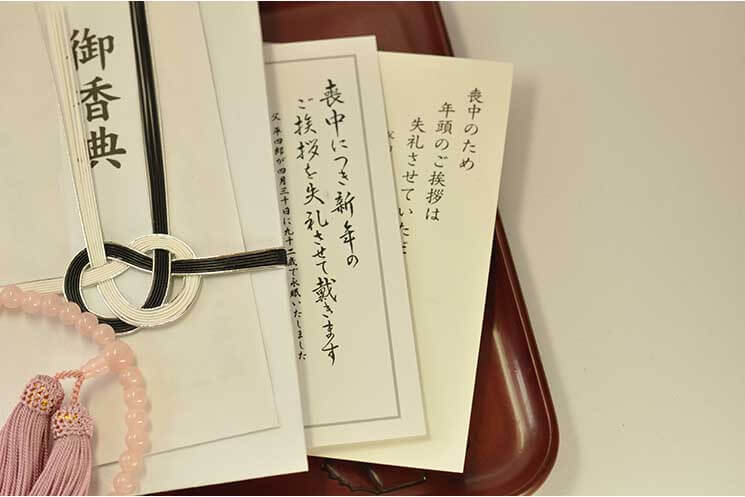 御香典
喪中につき新年の
ご挨拶を失礼させて戴きます
父 平四郎が四月三十日に九十二歳で永眠いたしました
喪中のため
年頭のご挨拶は
失礼させていただ